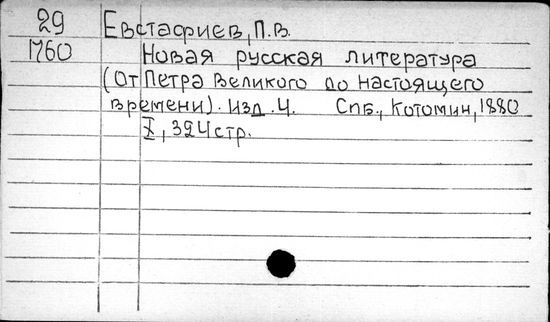 29 Евстафиев, П.В.
1760 Новая русская литература
(От Петра Великого до настоящего
времени). Изд. 4. Спб., Котомин, 1880
X, 324 стр.